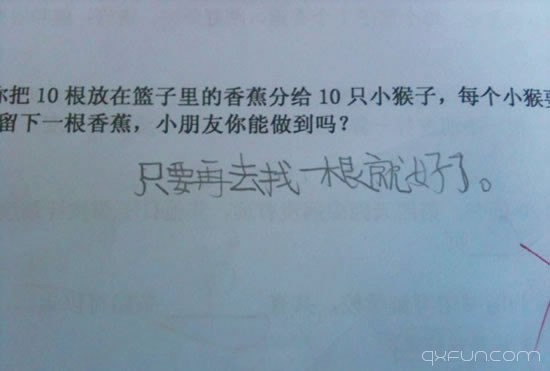 你把 10 根放在篮子里的香蕉分给 10 只小猴子，每个小猴要
留下一根香蕉，小朋友你能做到吗？
只要再去找一根就好了。
qxfun.com